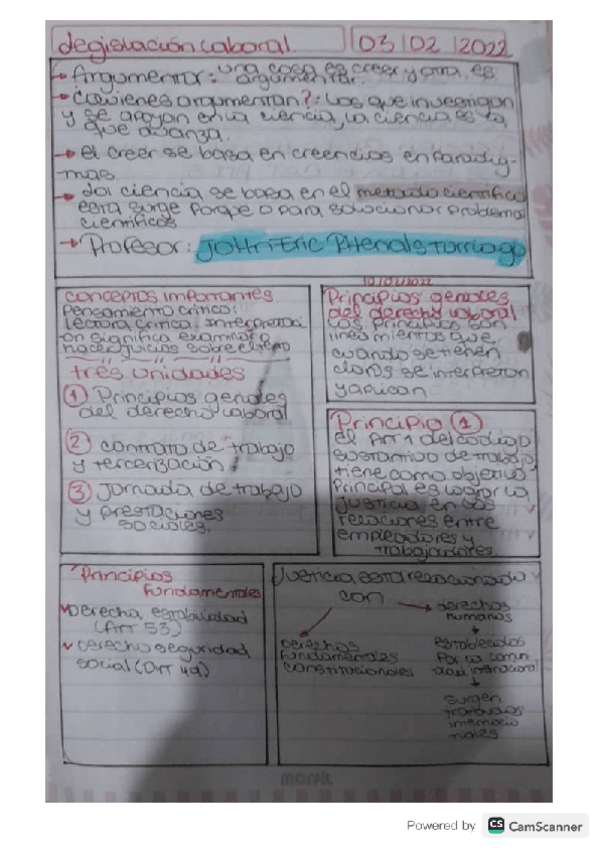 Legislación Laboral
03/02/2022
→ Argumentar: una cosa es creer y otra es argumentar.
→ ¿Quienes argumentan?: Los que investigan
y se apoyan en la ciencia, la ciencia es la
que avanza.
→ el creer se basa en creencias en Paradig-
mas.
→ La ciencia se basa en el metodo cientifico
esta surge porque o para solucionar problema
cientificos
→ Profesor: JOHN ERIC
conceptos importantes.
Pensamiento critico:
Lectura critica: Interpretaci
on significa examinar o
hacer juicios sobre
tres unidades
① Principios genales
del derecho laboral
② contrato de trabajo
y tercerización
③ Jornada de trabajo
y prestaciones
sociales.
10/02/2022
Principios genales
del derecho laboral
Los Principios son
lineamientos que
cuando se tienen
claros se interpretan
y aplican
Principio ①
el Art 1 del codigo
sustantivo de trabajo,
tiene como objetivo
Principal es lograr la
justicia en las
relaciones entre
empleadores y
trabajadores.
Principios
fundamentales
Derecha estabilidad
(Art 53)
Derecho seguridad
social (Art 49)
Justicia esta relacionado
con
derechos
fundamentales
constitucionales
derechos
humanos
establecidos
Por la comun
dad internacional
surgen
tratados
internacio
nales
Powered by CS CamScanner